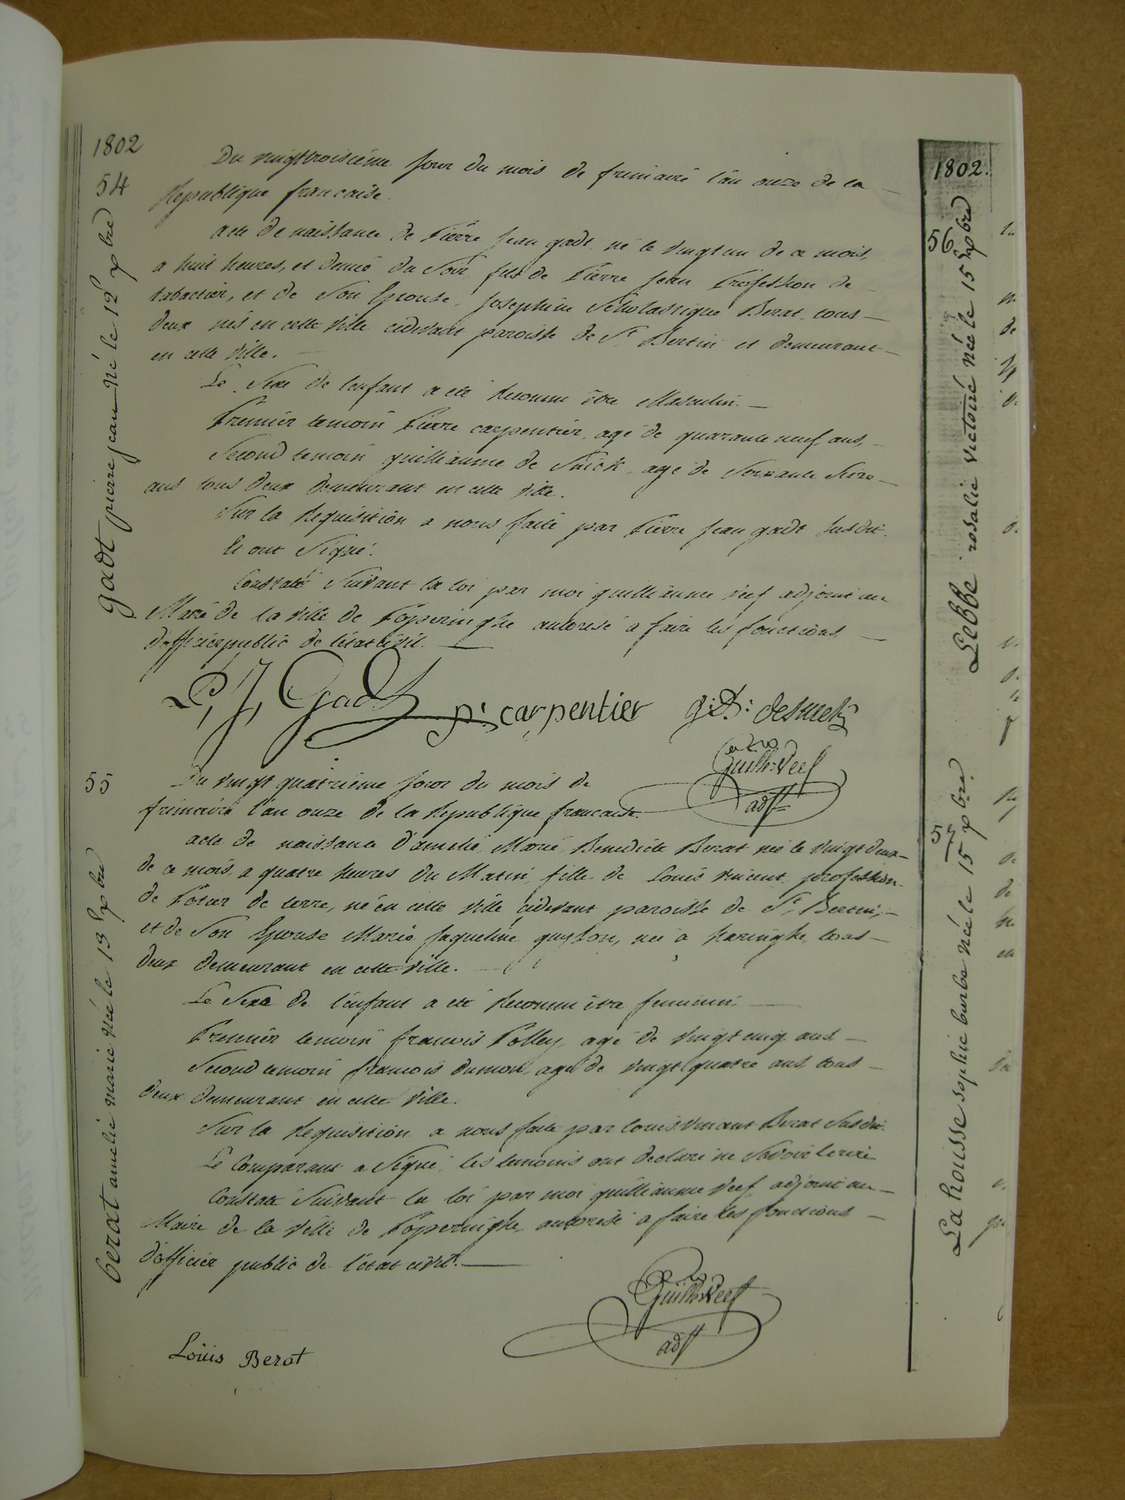 1802
54
gadt pierre jean né le 12 xbre
Du vingttroisième jour du mois de frimaire l'an onze de la
Republique française.
acte de naissance de Pierre Jean gadt né le vingt un de ce mois,
a huit heures, et demie du Soir, fils de Pierre Jean Profession de
tabactier, et de Son Epouse, Josephine Scholastique Berat tous
deux nés en cette Ville cidevant paroisse de St Bertin et demeurant
en cette Ville.
Le Sexe de l'enfant a eté Reconnu être Masculin.
Premier temoin Pierre carpentier agé de quarante neuf ans,
Second temoin guilliaume de Smeck agé de Soixante
ans tous deux demeurant en cette Ville.
Sur la Requisition a nous faite par Pierre Jean gadt Susdit.
Et ont Signé.
Constaté Suivant la loi par moi guilliaume Veef adjoint au
Maire de la Ville de Poperinghe autorisé a faire les fonctions
d'officierpublic de l'etat civil.
P, J, Gadt
p: carpentier
g:D: desmek
Guill: Veef
adjt
55
berat amelie marie née le 13 xbre
Du vingt quatrième jour du mois de
frimaire l'an onze de la Republique française.
acte de naissance d'amelie Marie Benedicte Berat née le Vingt deux
de ce mois, a quatre heures du Matin, fille de Louis Vincent, profession
de Potier de terre, né en cette Ville cidevant paroisse de St Bertin,
et de Son Epouse Marie Jaqueline, née a haringhe, tous
deux demeurant en cette Ville.
Le Sexe de l'enfant a eté Reconnu etre feminin.
Premier temoin francois Polley, agé de vingt cinq ans
Second temoin francois dumon, agé de vingt quatre ans tous
deux demeurant en cette Ville.
Sur la Requisition a nous faite par louis vincent Berat Susdit.
Le Comparant a Signé, les temoins ont declaré ne Savoir Ecrire
Constaté Suivant la loi par moi guilliaume Veef, adjoint au
Maire de la Ville de Poperinghe autorisé a faire les fonctions
d'officier public de l'etat civil.
Louis Berat
Guill: Veef
adjt
1802.
56
Lebbe rosalie victoire née le 15 xbre
57
La housse sophie barbe née le 15 xbre